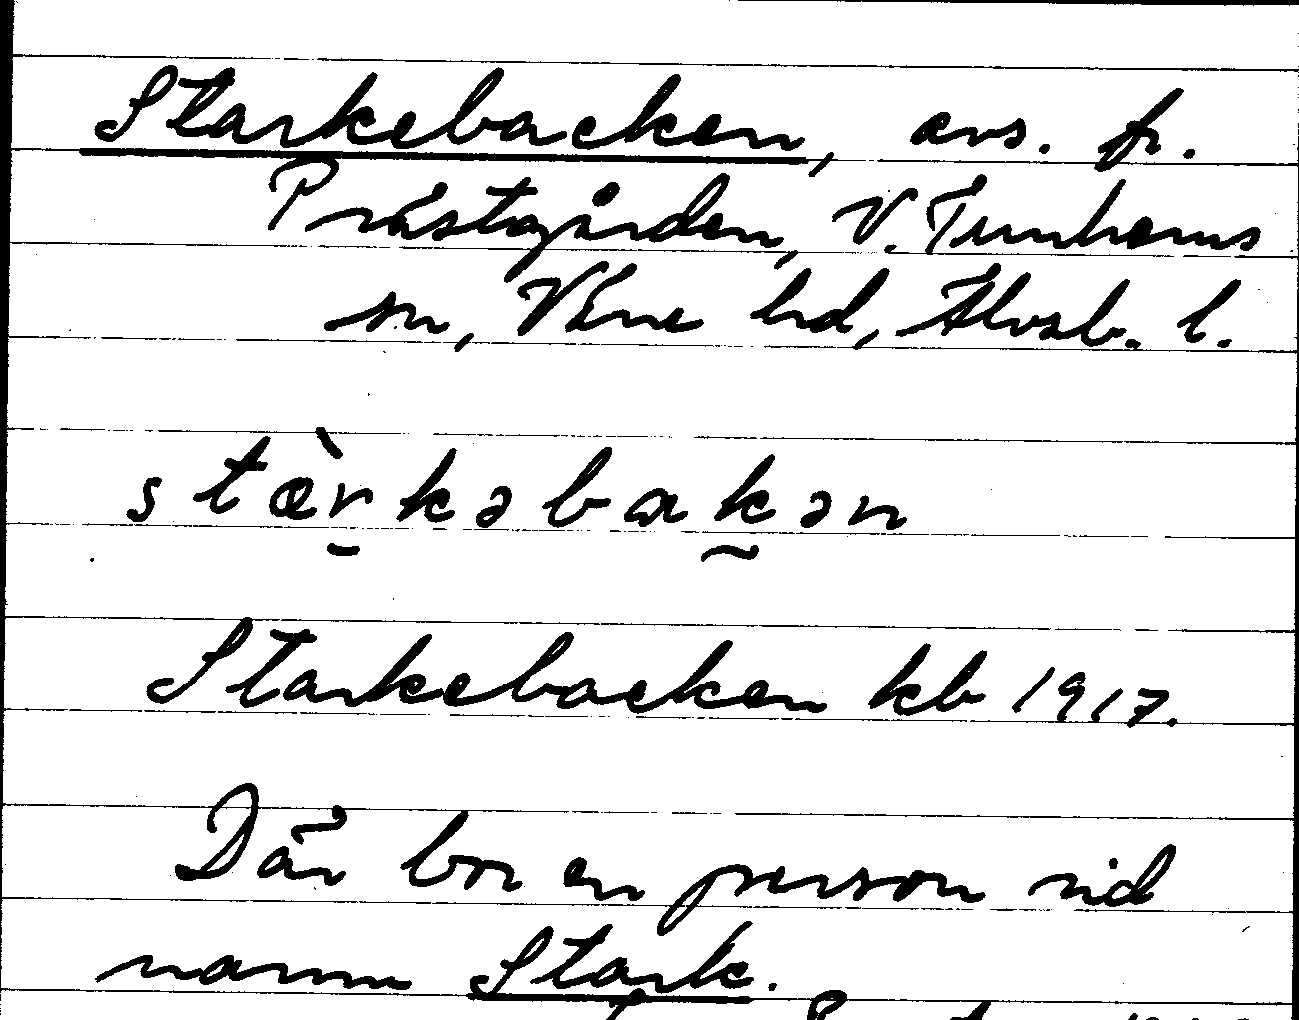 Starkebacken, avs. fr.
Prästgården, V. Tunhems
sn, Väne hd, Älvsb. l.
stæ̀rkəbakən
Starkebacken kb 1917.
Där bor en person vid
namn Stark.